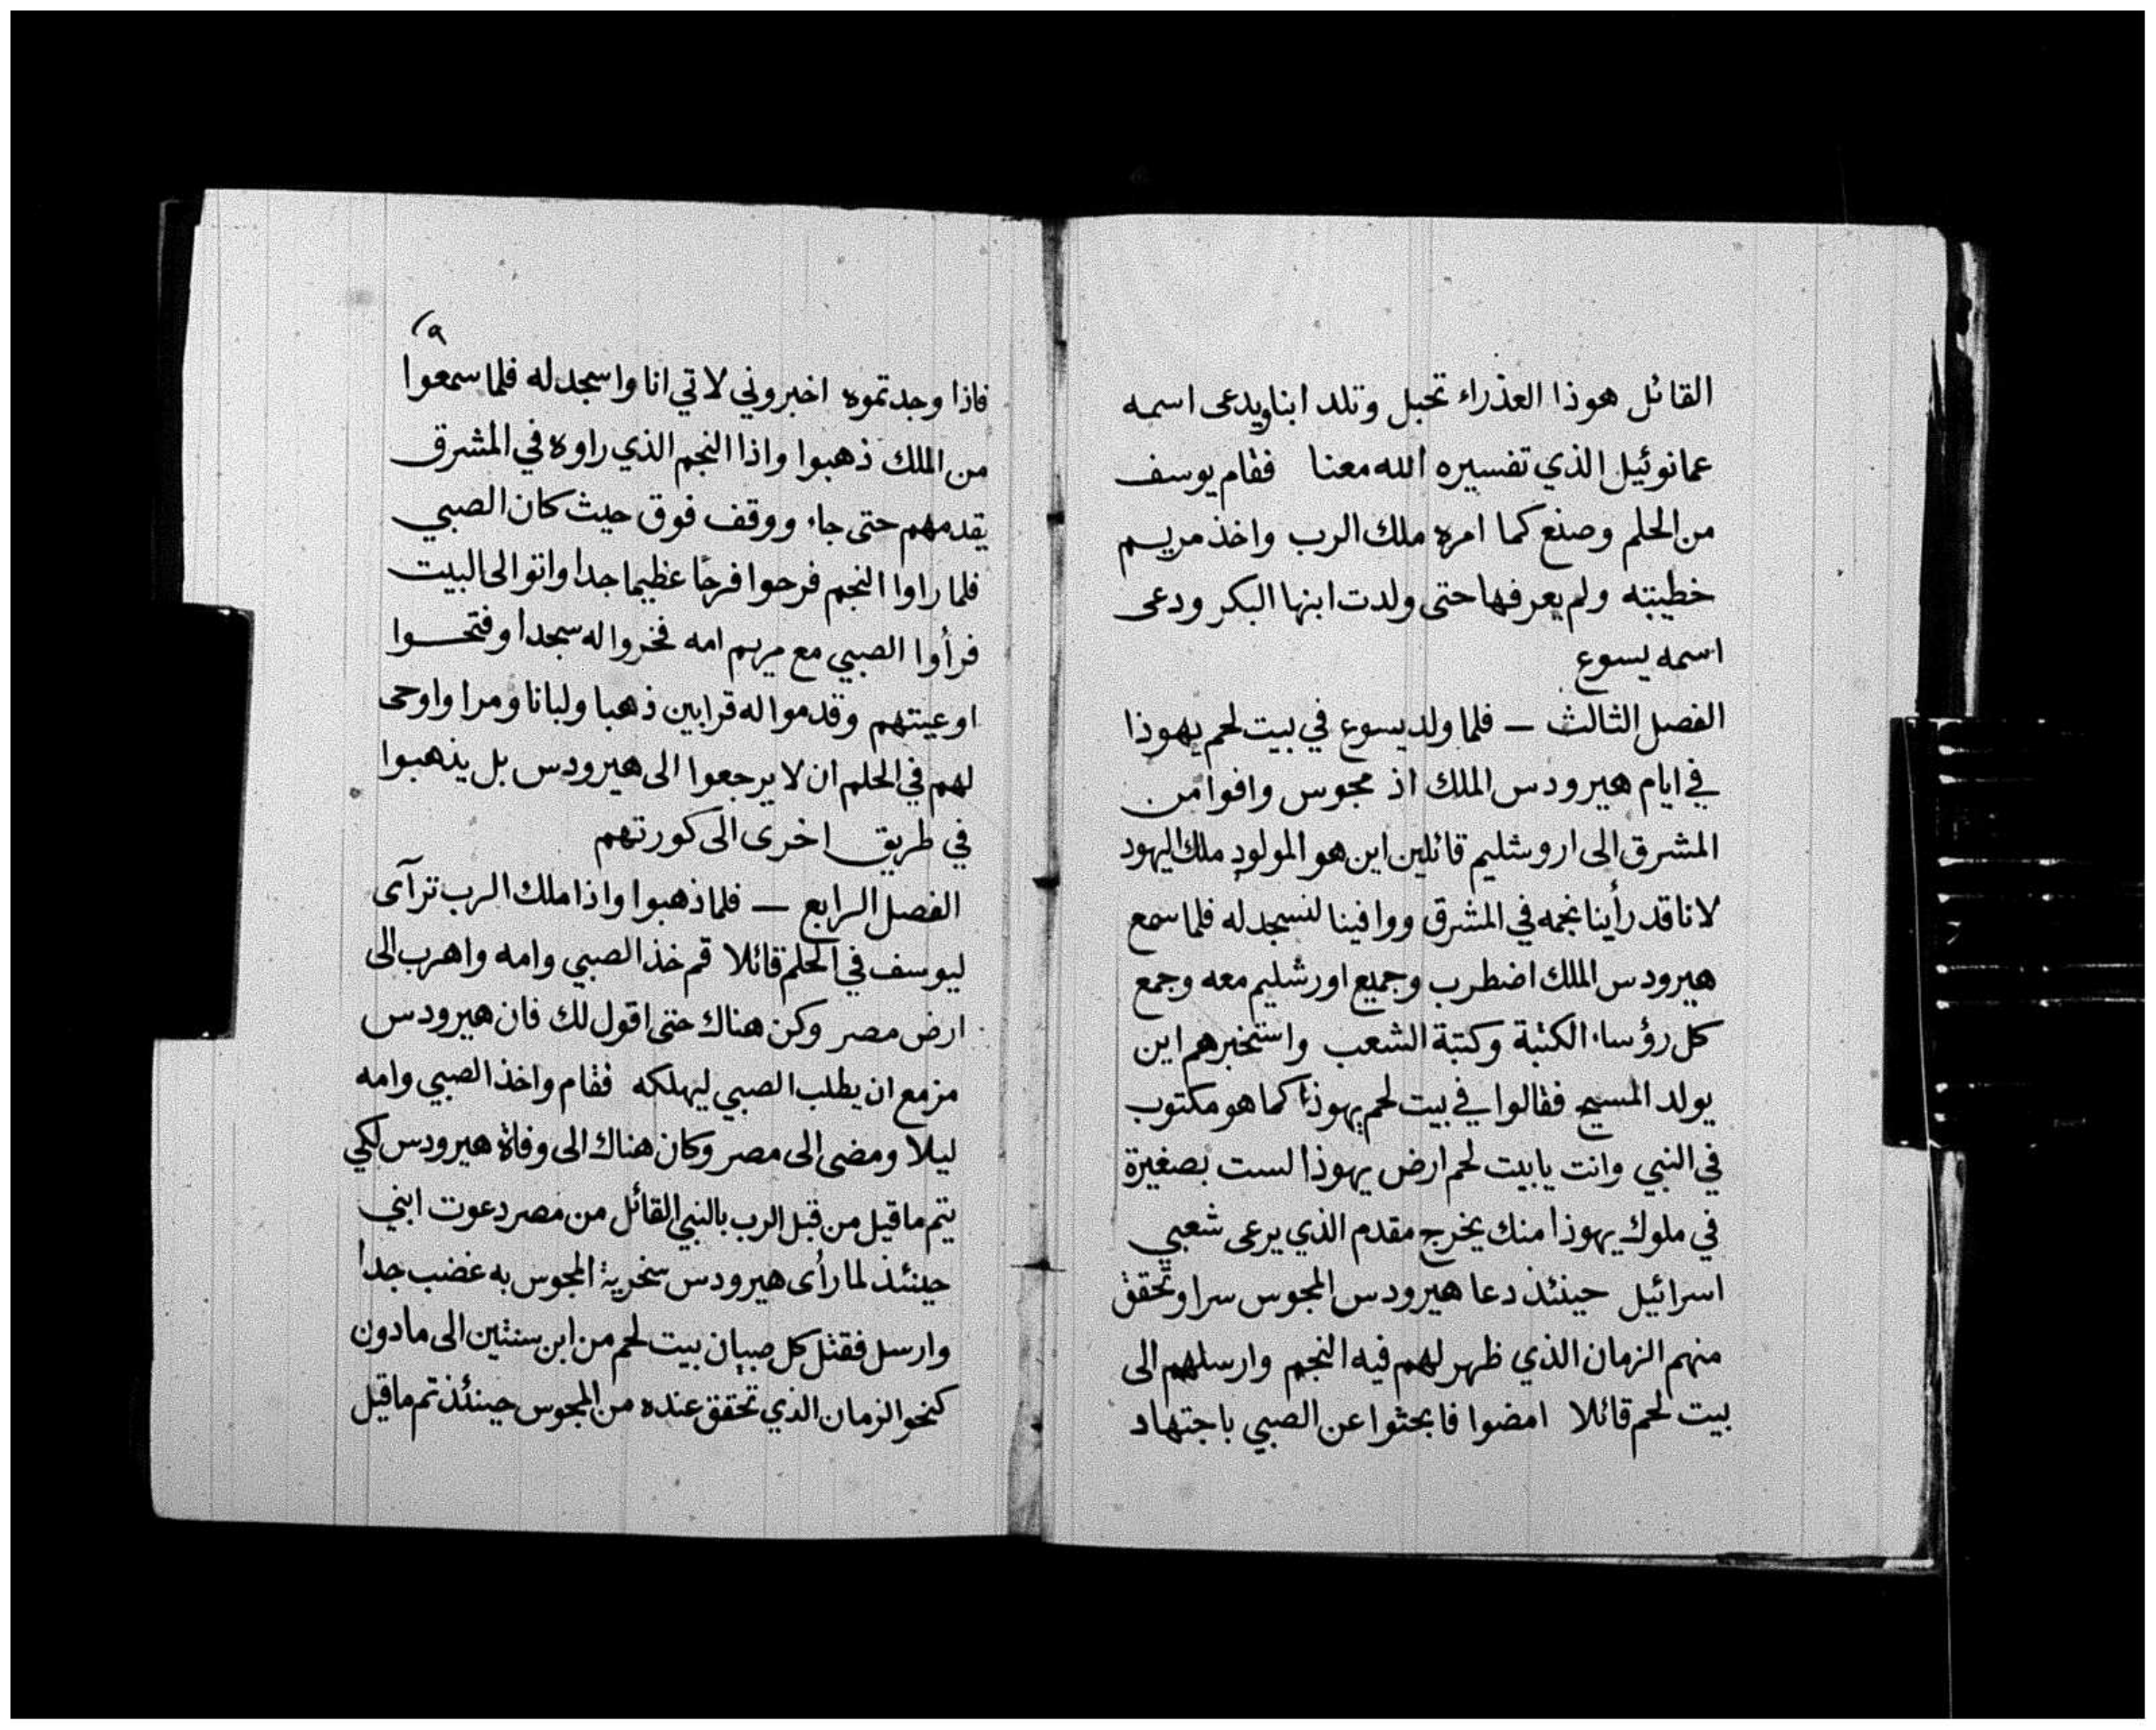 القائل هوذا العذراء تحبل وتلد ابنا ويدعى اسمه
عمانوئيل الذي تفسيره الله معنا فقام يوسف
من الحلم وصنع كما امره ملك الرب واخذ مريم
خطيبته ولم يعرفها حتى ولدت ابنها البكر ودعى
اسمه يسوع
الفصل الثالث – فلما ولد يسوع في بيت لحم يهوذا
في ايام هيرودس الملك اذ مجوس وافوا من
المشرق الى اروشليم قائلين اين هو المولود ملك اليهود
لانا قد رأينا نجمه في المشرق ووافينا لنسجد له فلما سمع
هيرودس الملك اضطرب وجميع اورشليم معه وجمع
كل رؤساء الكثبة وكتبة الشعب واستخبرهم اين
يولد المسيح فقالوا في بيت لحم يهوذا كما هو مكتوب
في النبي وانت يا بيت لحم ارض يهوذا لست بصغيرة
في ملوك يهوذا منك يخرج مقدم الذي يرعى شعبي
اسرائيل حينئذ دعا هيرودس المجوس سرا وتحقق
منهم الزمان الذي ظهر لهم فيه النجم وارسلهم الى
بيت لحم قائلا امضوا فابحثوا عن الصبي باجتهاد
فاذا وجدتموه اخبروني لاتي انا واسجد له فلما سمعوا
من الملك ذهبوا واذا النجم الذي راوه في المشرق
يقدمهم حتى جاء ووقف فوق حيث كان الصبي
فلما راوا النجم فرحوا فرحًا عظيما جدا واتوا الى البيت
فرأوا الصبي مع مريم امه فخروا له سجدا وفتحوا
اوعيتهم وقدموا له قرابين ذهبا ولبانا ومرا واوحى
لهم في الحلم ان لا يرجعوا الى هيرودس بل يذهبوا
في طريق اخرى الى كورتهم
الفصل الرابع – فلما ذهبوا واذا ملك الرب ترآى
ليوسف في الحلم قائلا قم خذ الصبي وامه واهرب الى
ارض مصر وكن هناك حتى اقول لك فان هيرودس
مزمع ان يطلب الصبي ليهلكه فقام واخذ الصبي وامه
ليلا ومضى الى مصر وكان هناك الى وفاة هيرودس لكي
يتم ما قيل من قبل الرب بالنبي القائل من مصر دعوت ابني
حينئذ لما رأى هيرودس سخرية المجوس به غضب جدا
وارسل فقتل كل صبيان بيت لحم من ابن سنتين الى ما دون
كنحو الزمان الذي تحقق عنده من المجوس حينئذ تم ما قيل